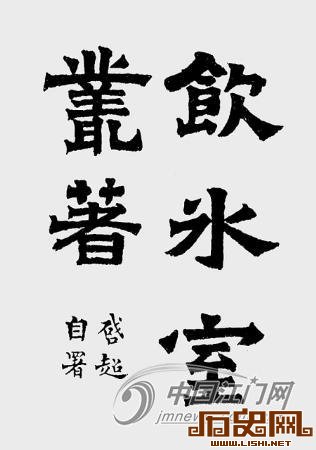 飲冰室
叢著
啓超
自署
中国江门网
jmnews
历史网
WWW.LISHI.NET